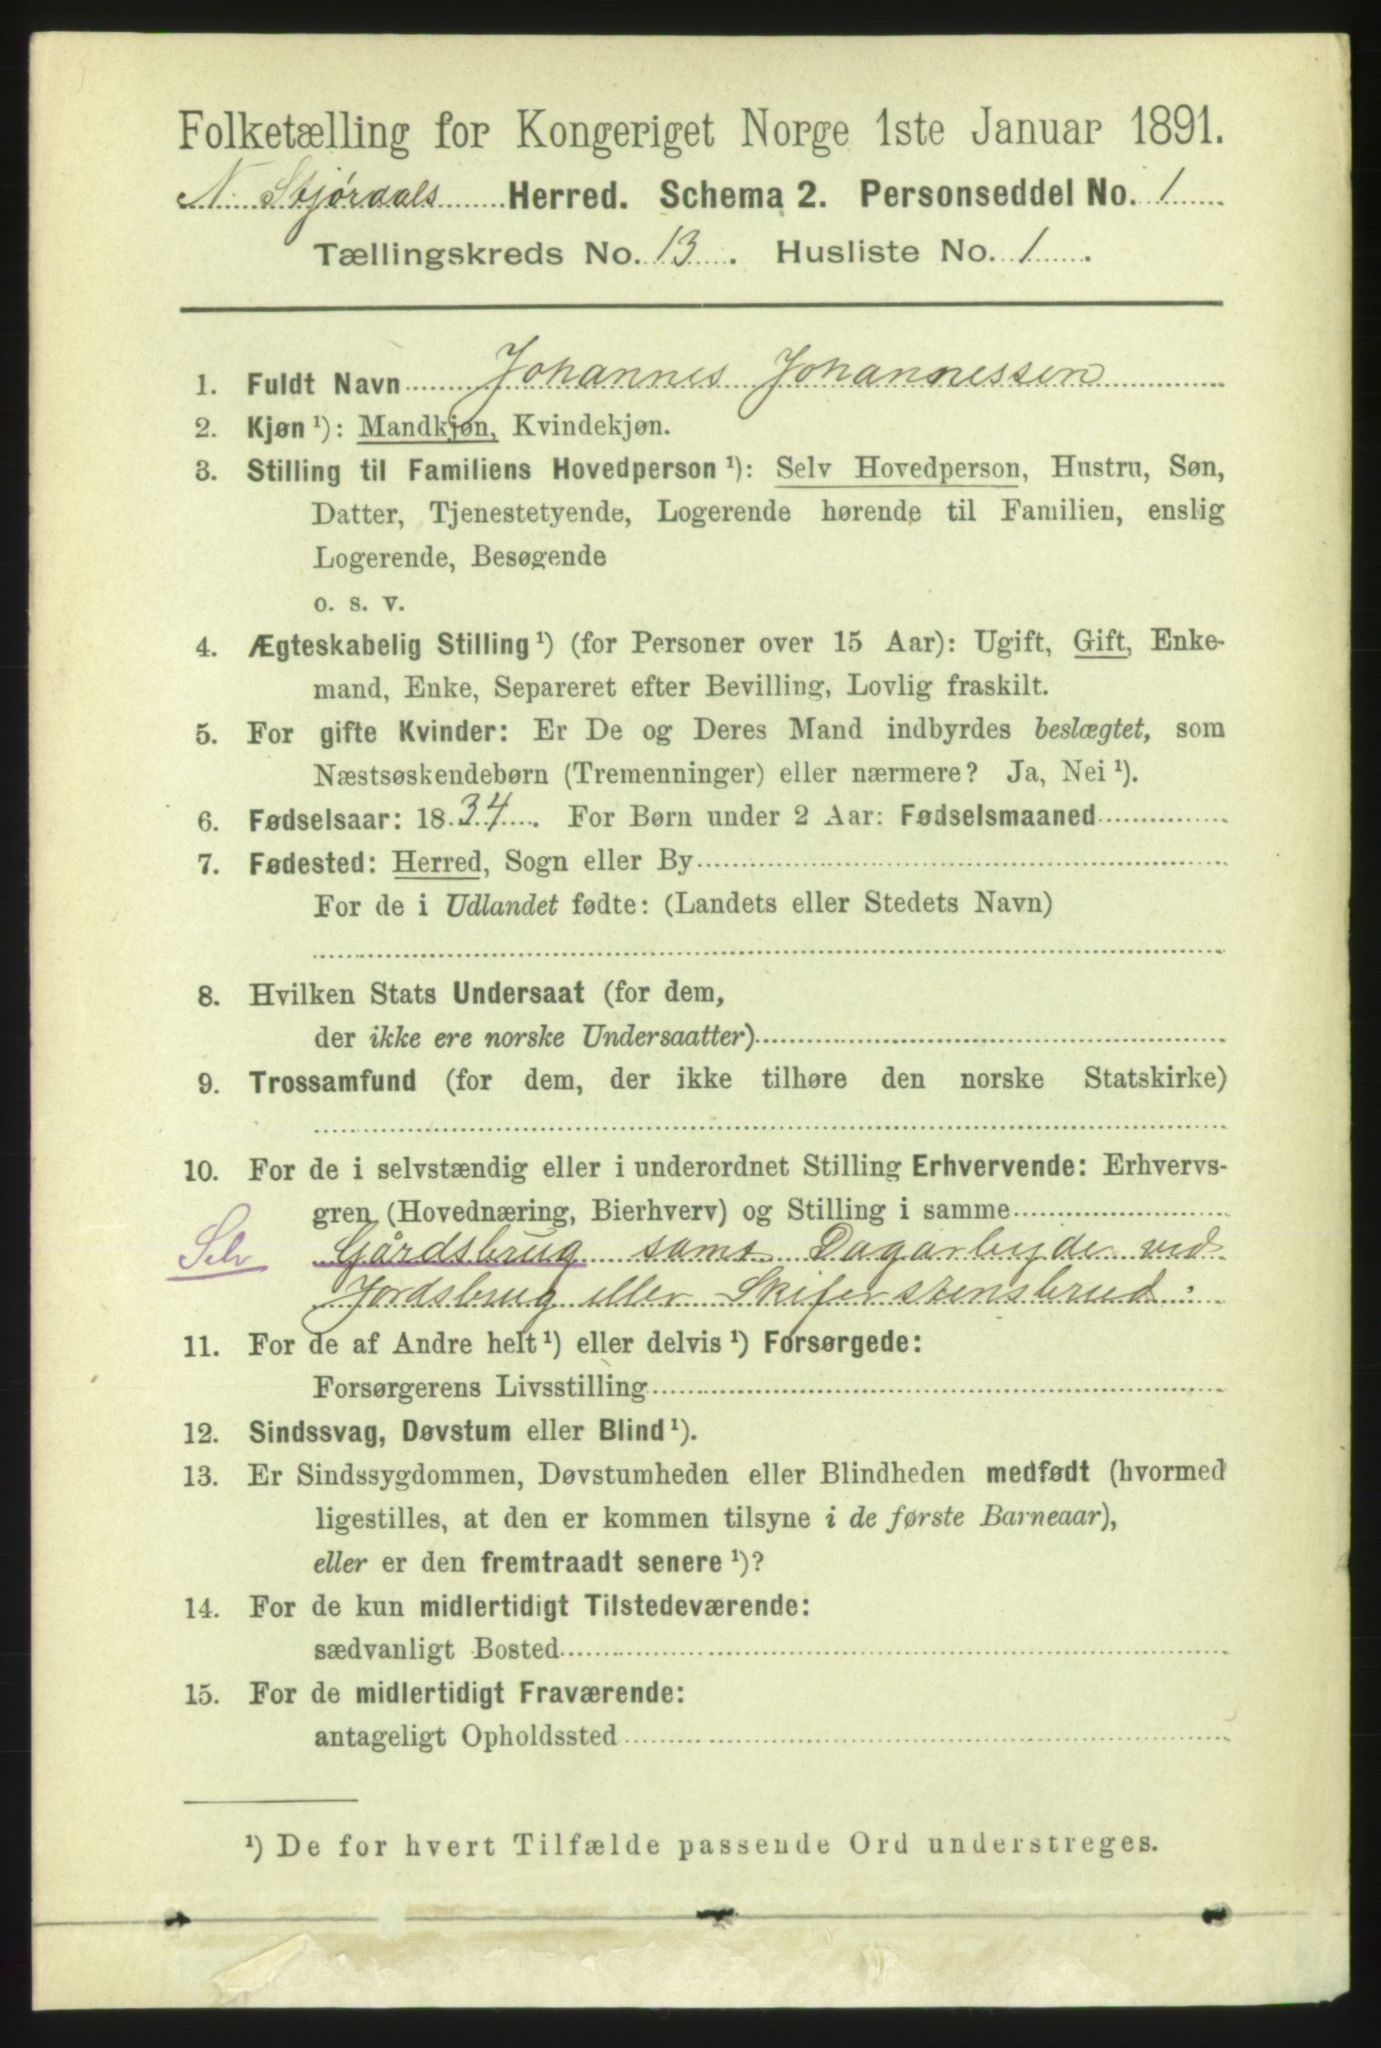 Folketælling for Kongeriget Norge 1ste Januar 1891.
N. Stjørdals Herred. Schema 2. Personseddel No. 1
Tællingskreds No. 13. Husliste No. 1.
1. Fuldt Navn Johannes Johannessen
2. Kjøn ¹): Mandkjøn, Kvindekjøn.
3. Stilling til Familiens Hovedperson ¹): Selv Hovedperson, Hustru, Søn,
Datter, Tjenestetyende, Logerende hørende til Familien, enslig
Logerende, Besøgende
o. s. v.
4. Ægteskabelig Stilling ¹) (for Personer over 15 Aar): Ugift, Gift, Enke-
mand, Enke, Separeret efter Bevilling, Lovlig fraskilt.
5. For gifte Kvinder: Er De og Deres Mand indbyrdes beslægtet, som
Næstsøskendebørn (Tremenninger) eller nærmere? Ja, Nei ¹).
6. Fødselsaar: 1834. For Børn under 2 Aar: Fødselsmaaned
7. Fødested: Herred, Sogn eller By
For de i Udlandet fødte: (Landets eller Stedets Navn)
8. Hvilken Stats Undersaat (for dem,
der ikke ere norske Undersaatter)
9. Trossamfund (for dem, der ikke tilhøre den norske Statskirke)
10. For de i selvstændig eller i underordnet Stilling Erhvervende: Erhvervs-
gren (Hovednæring, Bierhverv) og Stilling i samme
Selv Gårdsbrug samt Dagarbejde ved
Jordsbrug eller Skiferstensbrud.
11. For de af Andre helt ¹) eller delvis ¹) Forsørgede:
Forsørgerens Livsstilling
12. Sindssvag, Døvstum eller Blind ¹).
13. Er Sindssygdommen, Døvstumheden eller Blindheden medfødt (hvormed
ligestilles, at den er kommen tilsyne i de første Barneaar),
eller er den fremtraadt senere ¹)?
14. For de kun midlertidigt Tilstedeværende:
sædvanligt Bosted
15. For de midlertidigt Fraværende:
antageligt Opholdssted
¹) De for hvert Tilfælde passende Ord understreges.